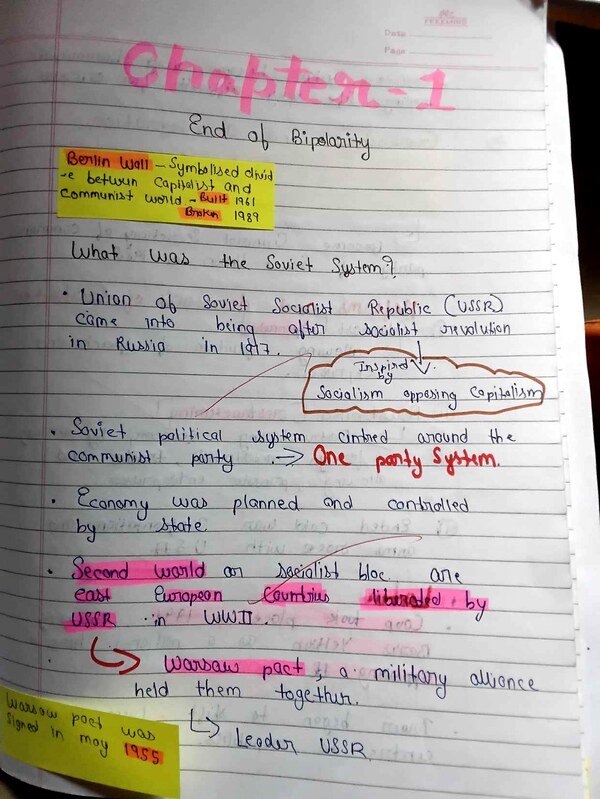 Date
Page
Chapter-1
End of Bipolarity
Berlin Wall - Symbolised divid
-e betwen Capitalist and
Communist world - Built 1961
Broken 1989
What was the Soviet System?
• Union of Soviet Socialist Republic (USSR)
came into being after socialist revolution
in Russia in 1917.
Inspired
by
Socialism opposing Capitalism
• Soviet political system cintred around the
communist party → One party System.
• Economy was planned and controlled
by state.
• Second world or socialist bloc are
east European Countries liberated by
USSR in WWII.
Warsaw pact, a military alliance
held them together.
Leader USSR
Warsaw pact was
signed in may 1955